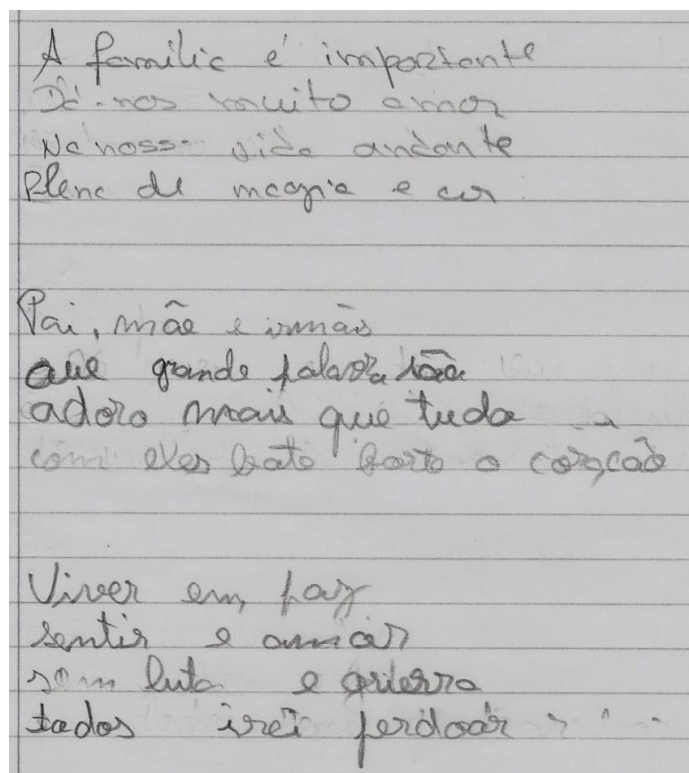 A família é importante
Dá-nos muito amor
Na nossa vida andante
Plena de magia e cor
Pai, mãe e irmão
que grande palavra são
adoro mais que tudo
com eles bate forte o coração
Viver em paz
sentir e amar
sem luta e guerra
todos irei perdoar